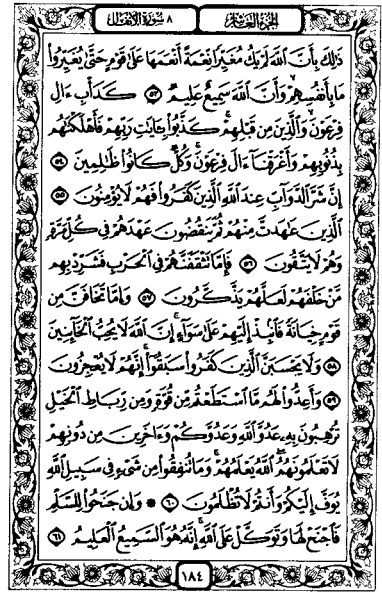 الجزء العاشر ٨ سورة الأنفال
ذَٰلِكَ بِأَنَّ ٱللَّهَ لَمْ يَكُ مُغَيِّرًا نِّعْمَةً أَنْعَمَهَا عَلَىٰ قَوْمٍ حَتَّىٰ يُغَيِّرُوا۟
مَا بِأَنفُسِهِمْ وَأَنَّ ٱللَّهَ سَمِيعٌ عَلِيمٌ ٥٣ كَدَأْبِ ءَالِ
فِرْعَوْنَ وَٱلَّذِينَ مِن قَبْلِهِمْ كَذَّبُوا۟ بِـَٔايَٰتِ رَبِّهِمْ فَأَهْلَكْنَٰهُم
بِذُنُوبِهِمْ وَأَغْرَقْنَآ ءَالَ فِرْعَوْنَ وَكُلٌّ كَانُوا۟ ظَٰلِمِينَ ٥٤
إِنَّ شَرَّ ٱلدَّوَآبِّ عِندَ ٱللَّهِ ٱلَّذِينَ كَفَرُوا۟ فَهُمْ لَا يُؤْمِنُونَ ٥٥
ٱلَّذِينَ عَٰهَدتَّ مِنْهُمْ ثُمَّ يَنقُضُونَ عَهْدَهُمْ فِى كُلِّ مَرَّةٍ
وَهُمْ لَا يَتَّقُونَ ٥٦ فَإِمَّا تَثْقَفَنَّهُمْ فِى ٱلْحَرْبِ فَشَرِّدْ بِهِم
مَّنْ خَلْفَهُمْ لَعَلَّهُمْ يَذَّكَّرُونَ ٥٧ وَإِمَّا تَخَافَنَّ مِن
قَوْمٍ خِيَانَةً فَٱنۢبِذْ إِلَيْهِمْ عَلَىٰ سَوَآءٍ إِنَّ ٱللَّهَ لَا يُحِبُّ ٱلْخَآئِنِينَ
٥٨ وَلَا يَحْسَبَنَّ ٱلَّذِينَ كَفَرُوا۟ سَبَقُوٓا۟ إِنَّهُمْ لَا يُعْجِزُونَ
٥٩ وَأَعِدُّوا۟ لَهُم مَّا ٱسْتَطَعْتُم مِّن قُوَّةٍ وَمِن رِّبَاطِ ٱلْخَيْلِ
تُرْهِبُونَ بِهِۦ عَدُوَّ ٱللَّهِ وَعَدُوَّكُمْ وَءَاخَرِينَ مِن دُونِهِمْ
لَا تَعْلَمُونَهُمُ ٱللَّهُ يَعْلَمُهُمْ وَمَا تُنفِقُوا۟ مِن شَىْءٍ فِى سَبِيلِ ٱللَّهِ
يُوَفَّ إِلَيْكُمْ وَأَنتُمْ لَا تُظْلَمُونَ ٦٠ ۞ وَإِن جَنَحُوا۟ لِلسَّلْمِ
فَٱجْنَحْ لَهَا وَتَوَكَّلْ عَلَى ٱللَّهِ إِنَّهُۥ هُوَ ٱلسَّمِيعُ ٱلْعَلِيمُ ٦١
١٨٤